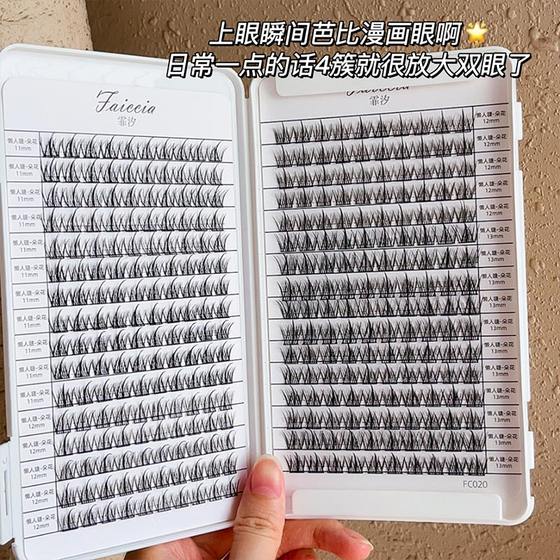 上眼瞬间芭比漫画眼啊
日常一点的话4簇就很放大双眼了
Faiccia
霏汐
懒人睫-朵花
11mm
懒人睫-朵花
11mm
懒人睫-朵花
11mm
懒人睫-朵花
11mm
懒人睫-朵花
11mm
懒人睫-朵花
11mm
懒人睫-朵花
11mm
懒人睫-朵花
11mm
懒人睫-朵花
11mm
懒人睫-朵花
11mm
懒人睫-朵花
11mm
懒人睫-朵花
12mm
懒人睫-朵花
12mm
懒人睫-朵花
12mm
懒人睫-朵花
12mm
懒人睫-朵花
12mm
Faiccia
霏汐
懒人睫-朵花
12mm
懒人睫-朵花
12mm
懒人睫-朵花
12mm
懒人睫-朵花
12mm
懒人睫-朵花
12mm
懒人睫-朵花
13mm
懒人睫-朵花
13mm
懒人睫-朵花
13mm
懒人睫-朵花
13mm
懒人睫-朵花
13mm
懒人睫-朵花
13mm
懒人睫-朵花
13mm
懒人睫-朵花
13mm
懒人睫-朵花
13mm
懒人睫-朵花
13mm
懒人睫-朵花
13mm
FC020